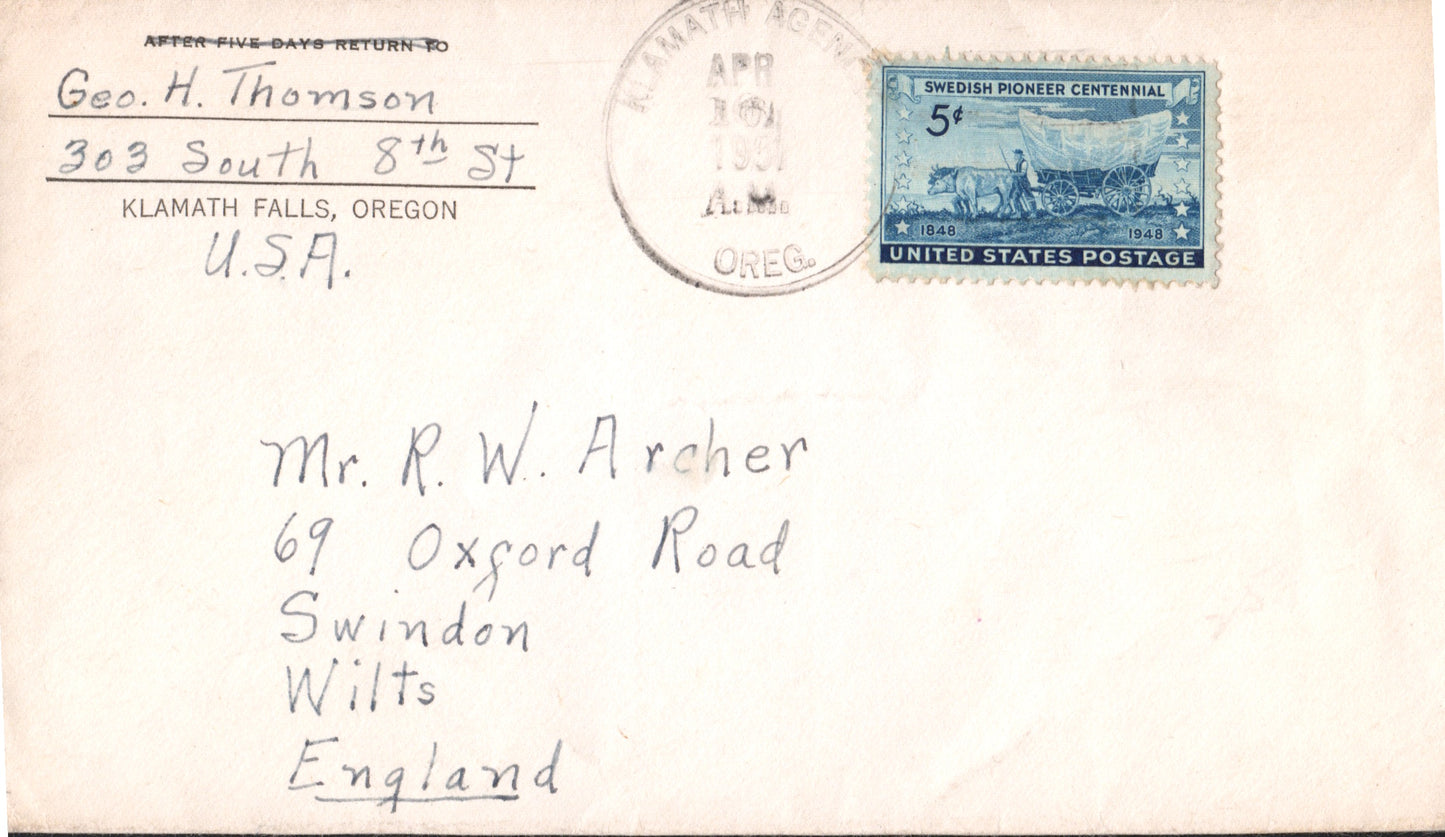 AFTER FIVE DAYS RETURN TO
Geo. H. Thomson
303 South 8th St
KLAMATH FALLS, OREGON
U.S.A.
KLAMATH AGENCY
APR
A.M.
OREG.
SWEDISH PIONEER CENTENNIAL
5¢
1848 1948
UNITED STATES POSTAGE
Mr. R. W. Archer
69 Oxford Road
Swindon
Wilts
England